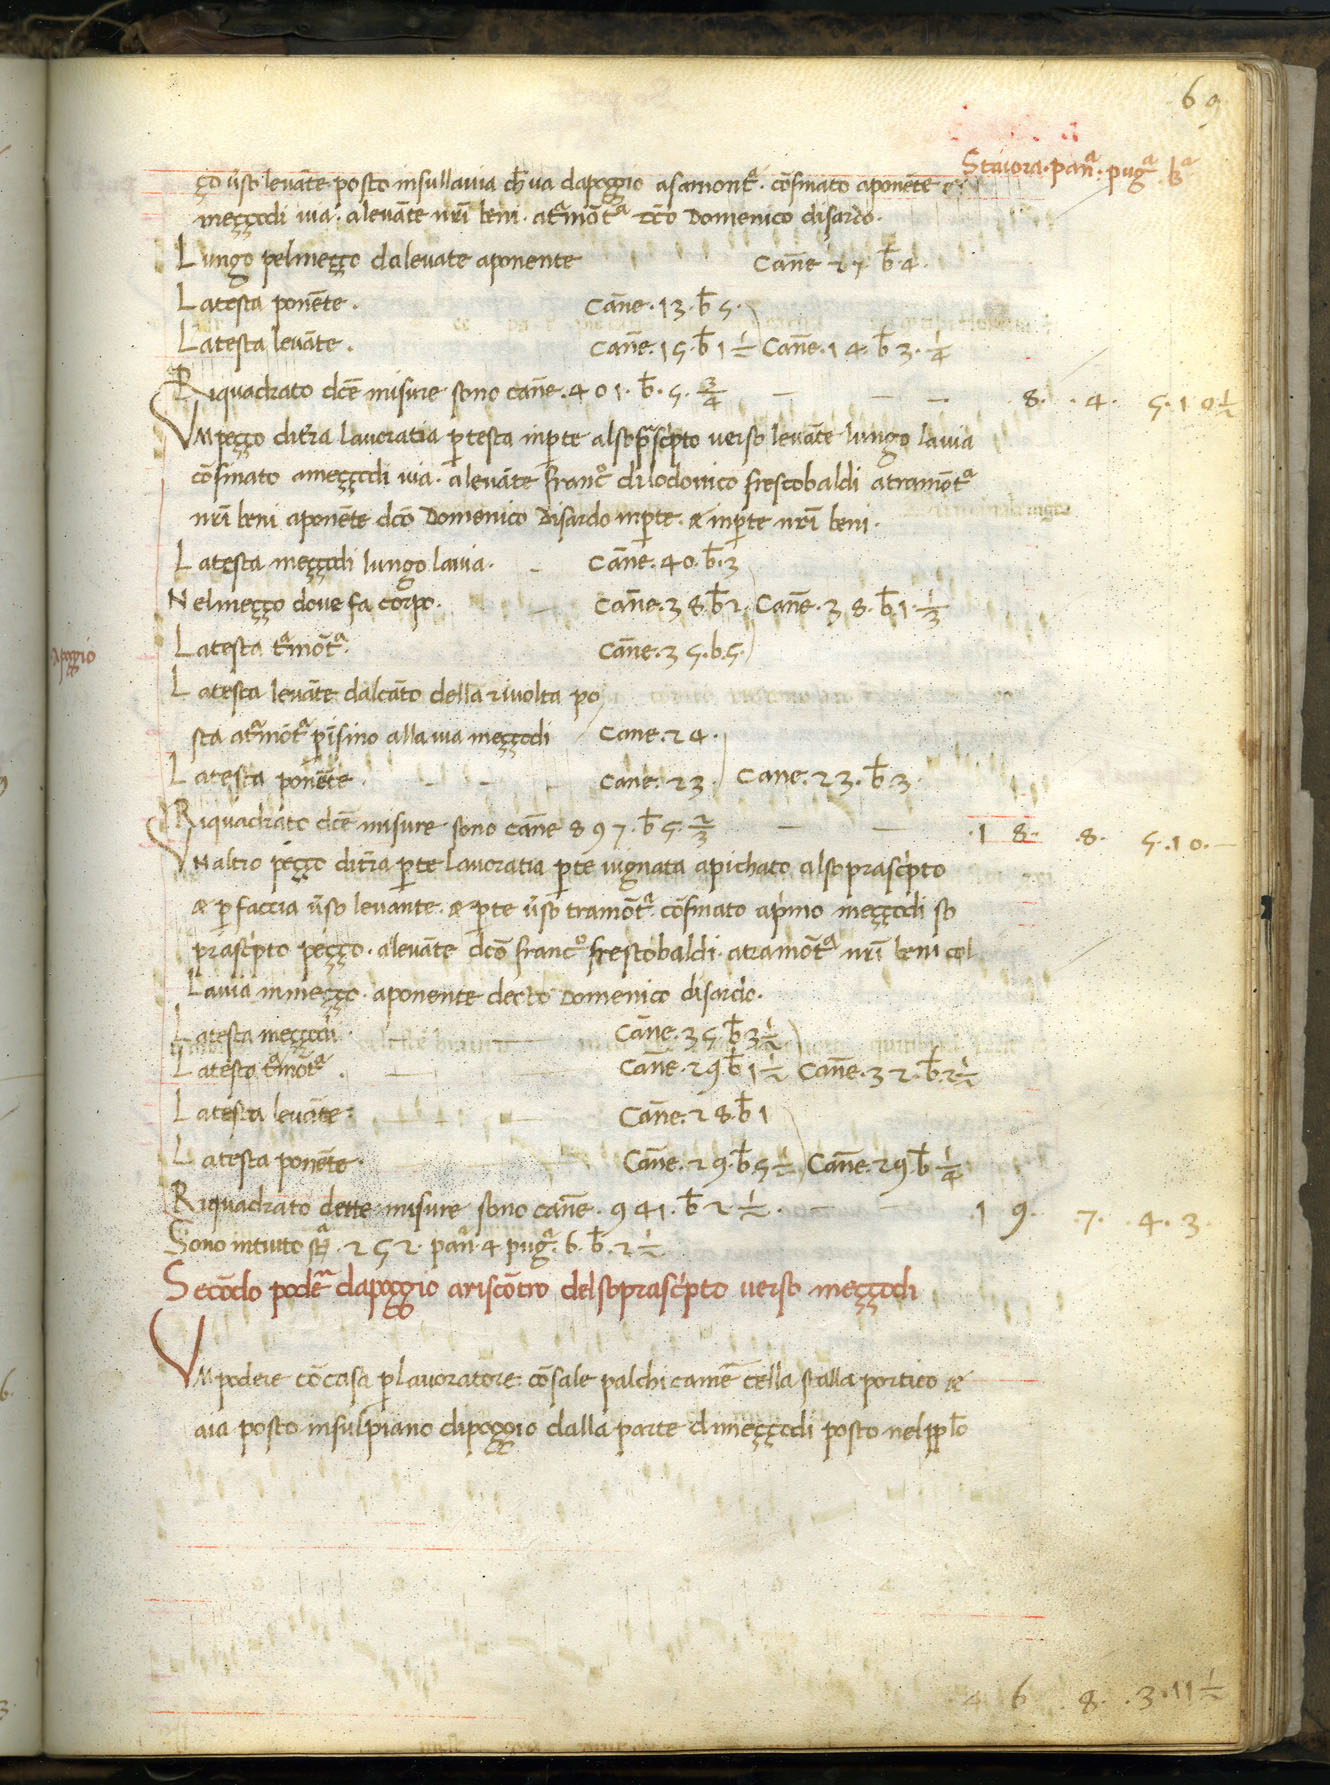 69
Staiora · pan̄ᵃ · pugᵃ · b̄ᵃ
ço ūso levāte posto insullavia ch̄ va dapoggio asamontᵃ · cōfinato aponēte e
meççodi via · alevāte nr̄i beni · atᵃmōtᵃ dc̄o Domenico disardo ·
Lungo pelmeçço dalevate aponente Cañe 27 · b̄ · 4 ·
Latesta ponēte · Cañe · 13 · b̄ 5 ·
Latesta levāte · Cañe · 15 · b̄ 1 ½ Cañe · 14 · b̄ 3 · ¼
Riquadrato dc̄e misure sono cañe · 401 · b̄ · 5 · ¾ — — — 8 · · 4 · 5 · 10 ½
VM peçço dit̄ra lavoratia p̱testa inp̱te alsopᵃscipto verso levāte lungo lavia
cōfinato ameççodi via · alevāte francº dilodovico frescobaldi atramōtᵃ
nr̄i beni aponēte dc̄o Domenico Disardo inp̱te · & inp̱te nr̄i beni ·
Latesta meççodi lungo lavia · - Cañe · 40 · b̄ · 3
Nelmeçço dove fa corpo · — Cañe · 38 · b̄ 2 · Cañe · 38 · b̄ 1 · ⅓
Latesta tᵃmōtᵃ · Cañe · 35 · b · 5 ·
Apogio
Latesta levāte dalcāto della rivolta po
sta atᵃmōtᵃ p̱insino alla via meççodi Cane · 24 ·
Latesta ponēte · - - - Cane · 23 · Cane · 23 · b̄ · 3 ·
Riquadrato dc̄e misure sono cañe 897 · b̄ 5 · ⅔ — — · 18 · · 8 · 5 · 10 · —
VNaltro peçço dit̄ra p̱te lavoratia p̱te vignata apichato alsoprascipto
& p̱ faccia ūso levante · & p̱te ūso tramōtᵃ · cōfinato apimo meççodi so
prascipto peçço · alevāte dc̄o francº frescobaldi · atramōtᵃ nr̄i beni col
Lavia inmeçço · aponente decto Domenico disardo ·
Latesta meççodi · — — Cañe · 35 b̄ 3 ½
Latesta tᵃmōtᵃ · — — Cañe · 29 b̄ 1 ½ Cañe · 32 · b̄ · 2 ½
Latesta levāte · — — Cañe · 28 · b̄ 1
Latesta ponēte · Cañe · 29 · b̄ 5 ½ Cañe · 29 b̄ ¼
Riquadrato dette misure sono cañe · 941 · b̄ 2 ½ · — — · 19 · · 7 · · 4 · 3 ·
Sono intutto stᵃ · 252 · pañ · 4 pugᵃ · 6 · b̄ · 2 ½
Secōdo podeᵉ dapoggio ariscōtro delsoprascipto verso meççodi
VM podere cō casa p̱ lavoratore cō sale palchi camē cella stalla portico &
aia posto insulpiano dipoggio dalla parte dimeççodi posto nelpplo
· 4 6 · 8 · · 3 · 11 ½